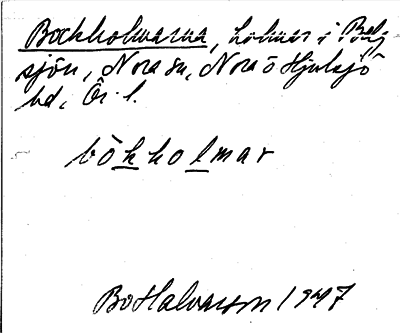 Bockholmarna, holmar i Bälg
sjön, Nora sn, Nora o Hjulsjö
bd, Ör. l.
bòkholmar
Bo Halvarson 1947